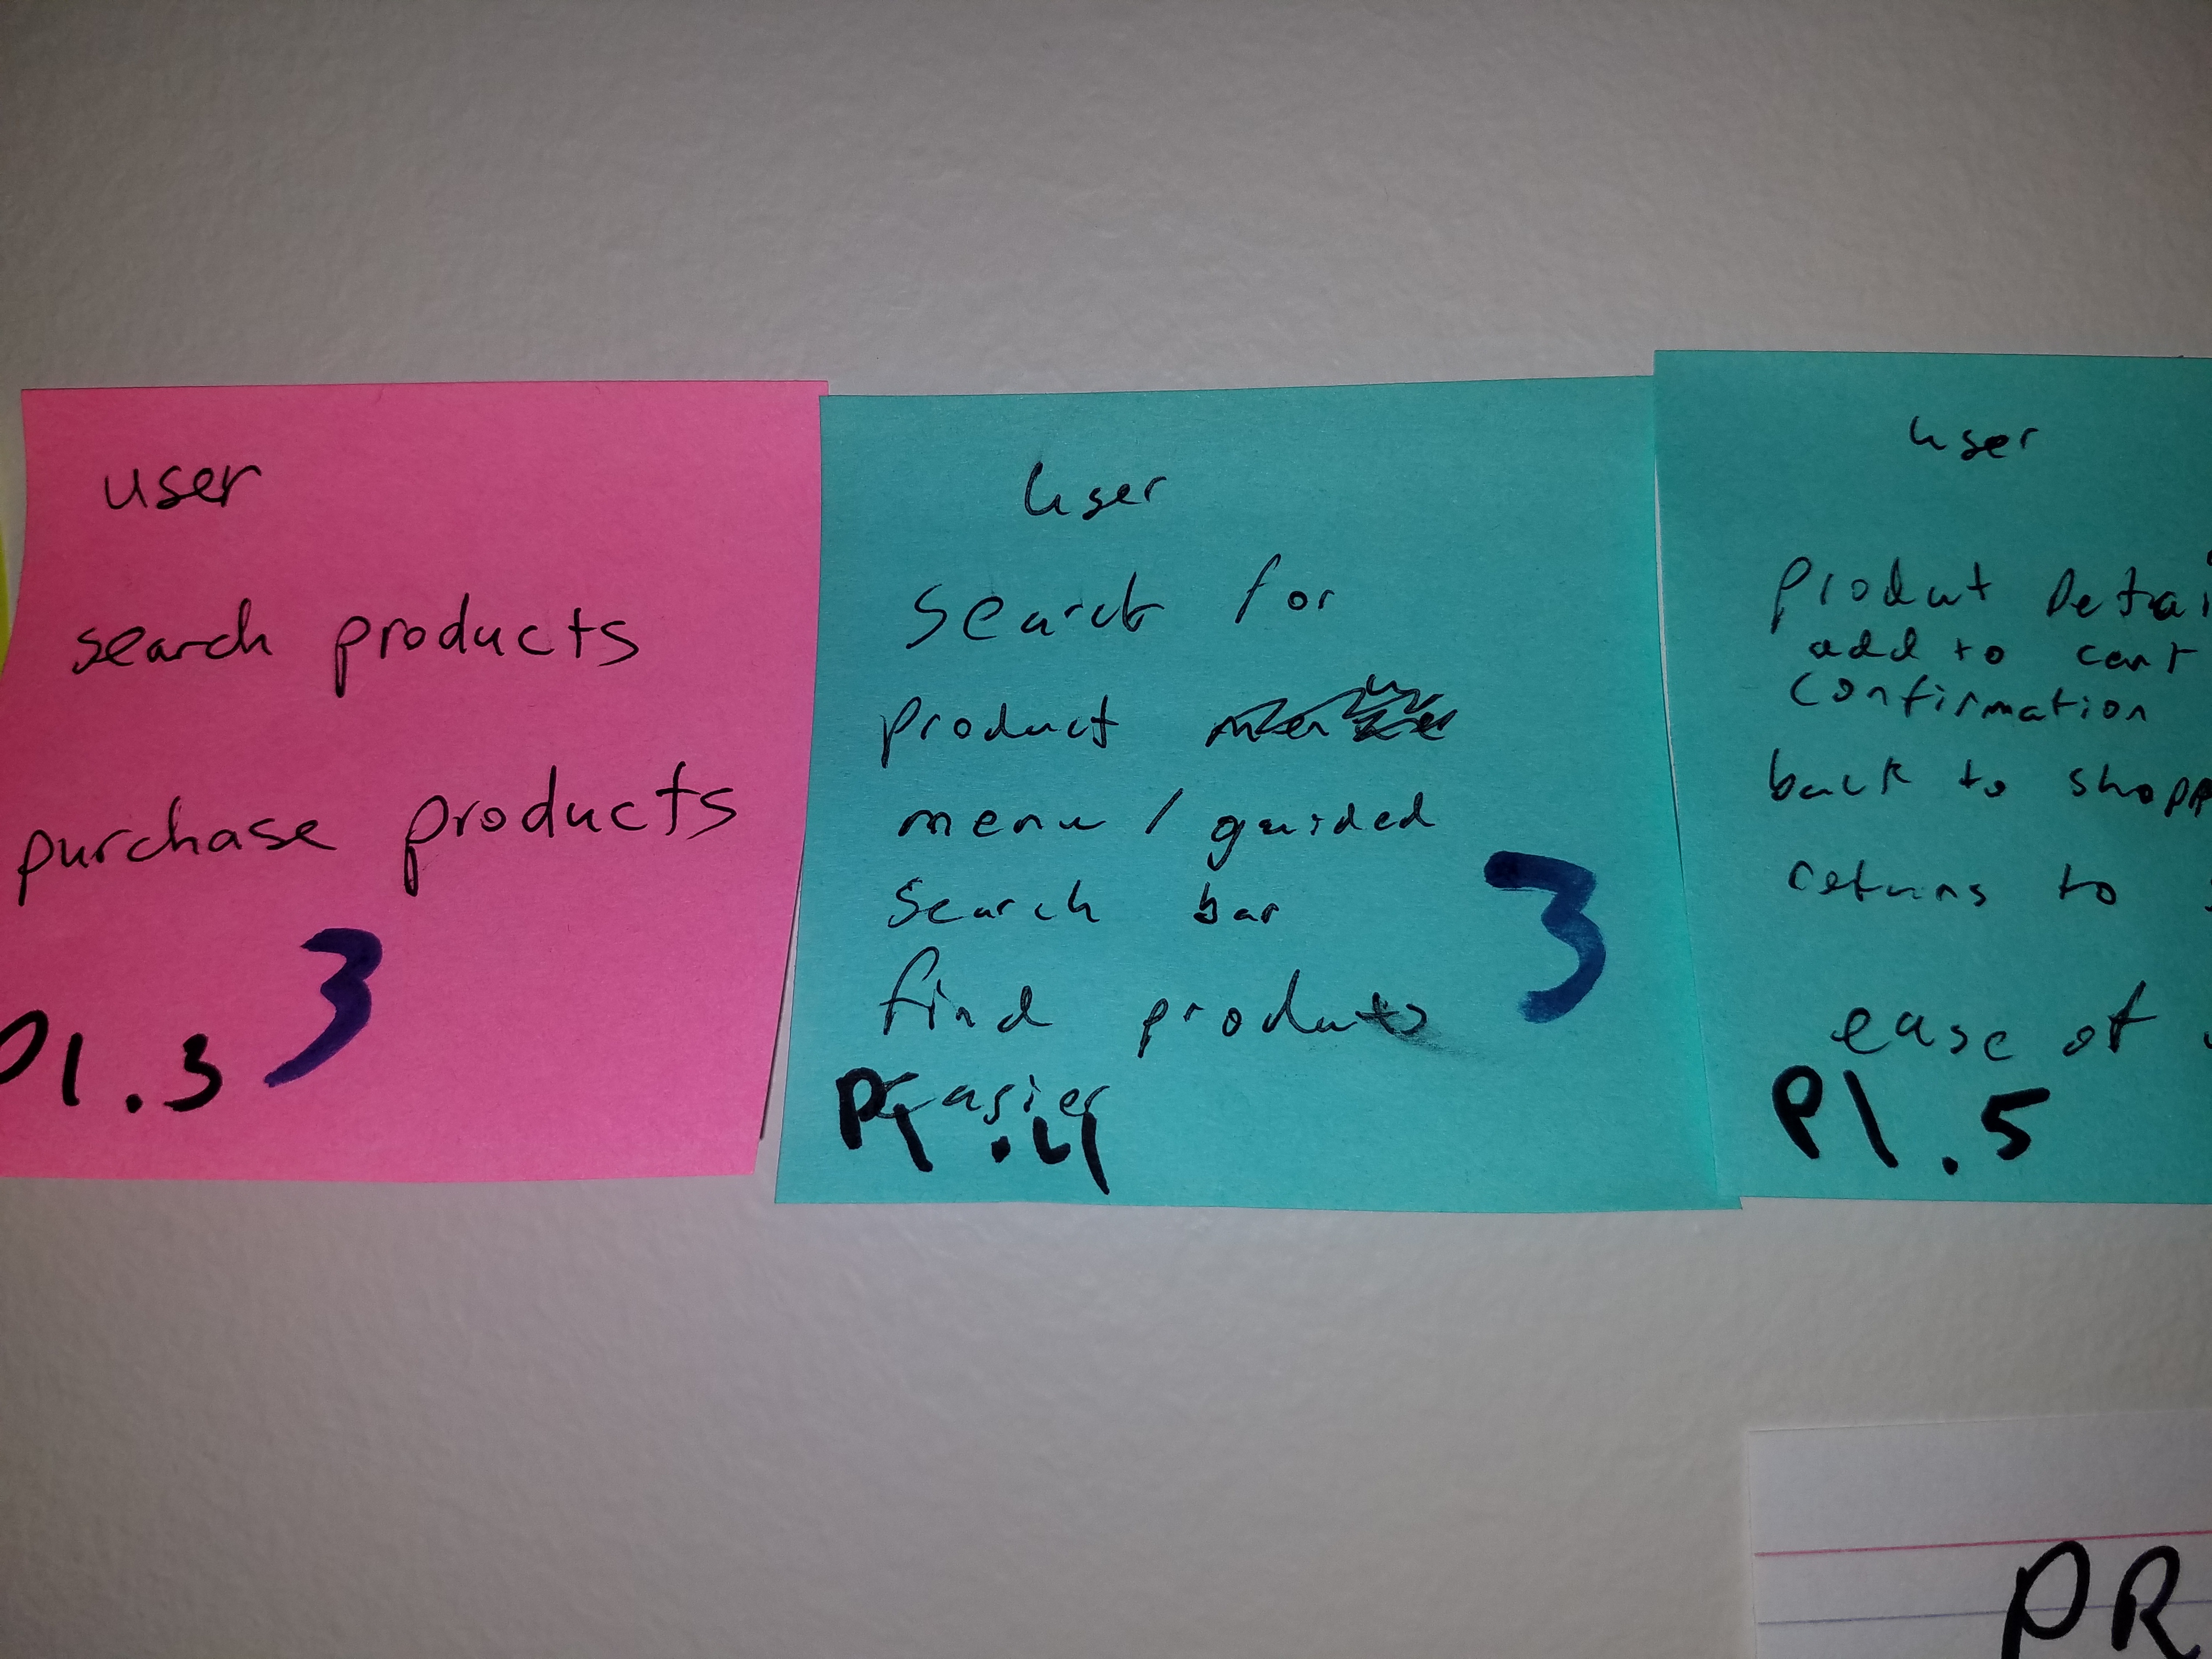 user
search products
purchase products
3
P1.3
user
search for
product
menu / guided
search bar
find products
easier
3
P1.4
user
Product Detai
add to cart
confirmation
back to shopp
returns to
ease of
P1.5
PR